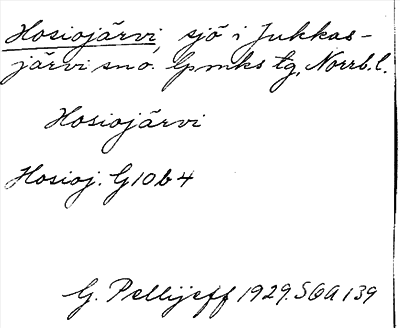 Hosiojärvi, sjö i Jukkas-
järvi sn o. lpmks tg, Norrb. l.
Hosiojärvi
Hosioj. G10b4
G. Pellijeff 1929. SOA 139